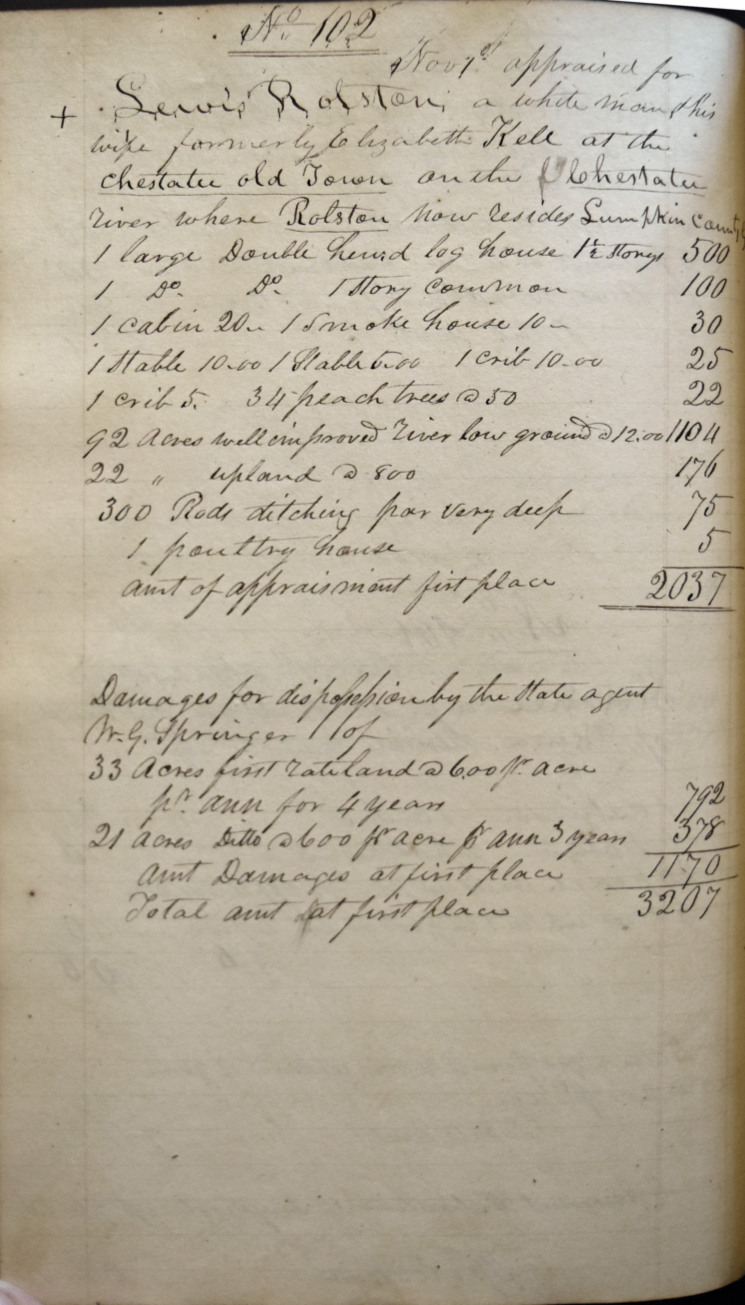 No 102
Nov 1st appraised for
+ Lewis Rolston, a white man & his
wife formerly Elizabeth Kell at the
Chestatee old Town on the Chestatee
river where Rolston now resides Lumpkin County
1 large Double hewd log house 1½ storys 500
1 Do. Do. 1 story common 100
1 cabin 20 1 Smoke house 10 30
1 stable 10.00 1 stable 5.00 1 crib 10.00 25
1 crib 5. 34 peach trees @ 50 22
92 Acres well improved river low ground @ 12.00 1104
22 " upland @ 800 176
300 Rods ditching par very deep 75
1 poultry house 5
amt of appraisment first place 2037
Damages for dispossession by the state agent
W. G. Springer of
33 Acres first rate land @ 6.00 pr. acre
pr. ann for 4 years 792
21 acres Ditto @ 600 pr acre pr ann 3 years 378
amt Damages at first place 1170
Total amt at first place 3207